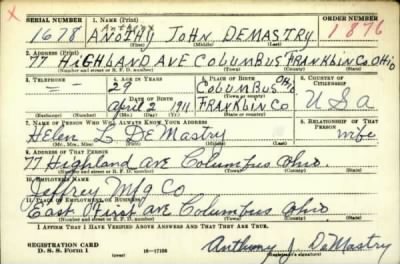 SERIAL NUMBER 1. NAME (Print) ORDER NUMBER
1678 ANOTHY JOHN DEMASTRY 1876
(First) (Middle) (Last)
2. ADDRESS (Print)
77 HIGHLAND AVE COLUMBUS FRANKLIN CO. OHIO
(Number and street or R. F. D. number) (Town) (County) (State)
3. TELEPHONE 4. AGE IN YEARS 5. PLACE OF BIRTH 6. COUNTRY OF CITIZENSHIP
29 COLUMBUS OHIO
DATE OF BIRTH (Town or county)
April 2 1911 FRANKLIN CO U S A
(Mo.) (Day) (Yr.) (State or country)
7. NAME OF PERSON WHO WILL ALWAYS KNOW YOUR ADDRESS 8. RELATIONSHIP OF THAT PERSON
Helen L DeMastry wife
(Mr., Mrs., Miss) (First) (Middle) (Last)
9. ADDRESS OF THAT PERSON
77 Highland Ave Columbus Ohio.
(Number and street or R. F. D. number) (Town) (County) (State)
10. EMPLOYER'S NAME
Jeffrey Mfg Co
11. PLACE OF EMPLOYMENT OR BUSINESS
East First Ave Columbus Ohio
(Number and street or R. F. D. number) (Town) (County) (State)
I AFFIRM THAT I HAVE VERIFIED ABOVE ANSWERS AND THAT THEY ARE TRUE.
REGISTRATION CARD
D. S. S. Form 1 16-17105 Anthony J DeMastry
(over) (Registrant's signature)